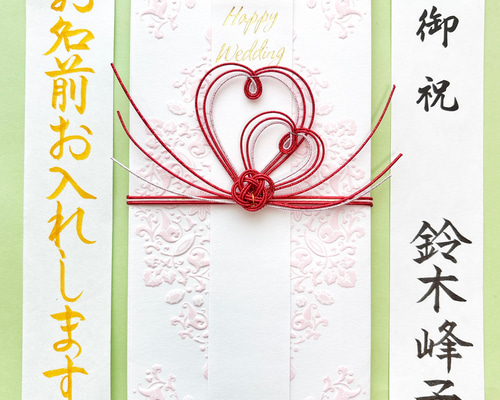 御祝
鈴木峰子
Happy
Wedding
お名前お入れします